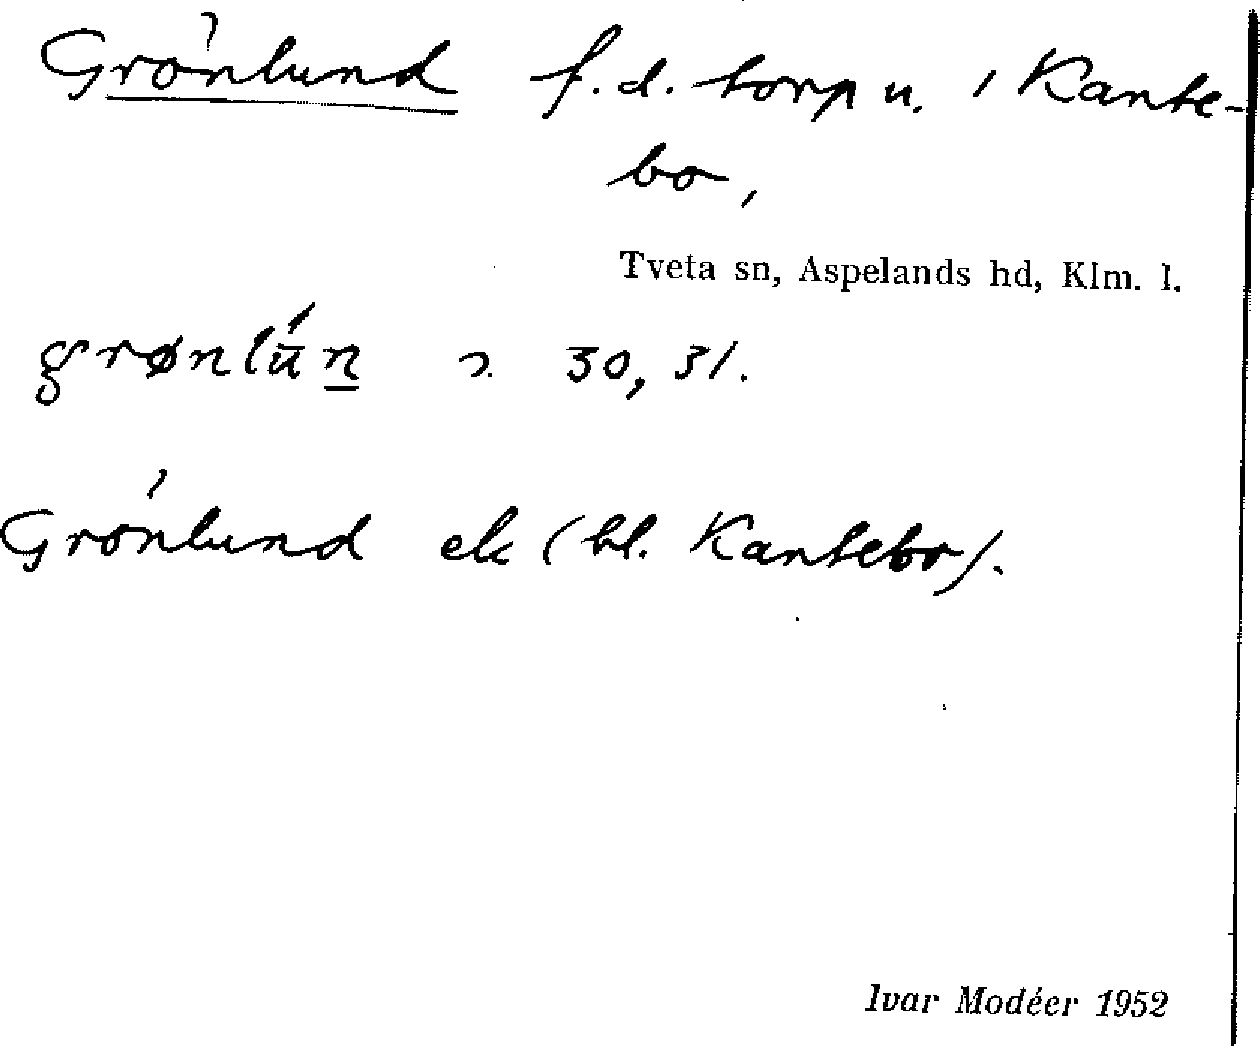 Grönlund f.d. torp u. / Kante-
bo,
Tveta sn, Aspelands hd, Klm. l.
grønlū́n 30, 31.
Grönlund ek (bl. Kantebo).
Ivar Modéer 1952